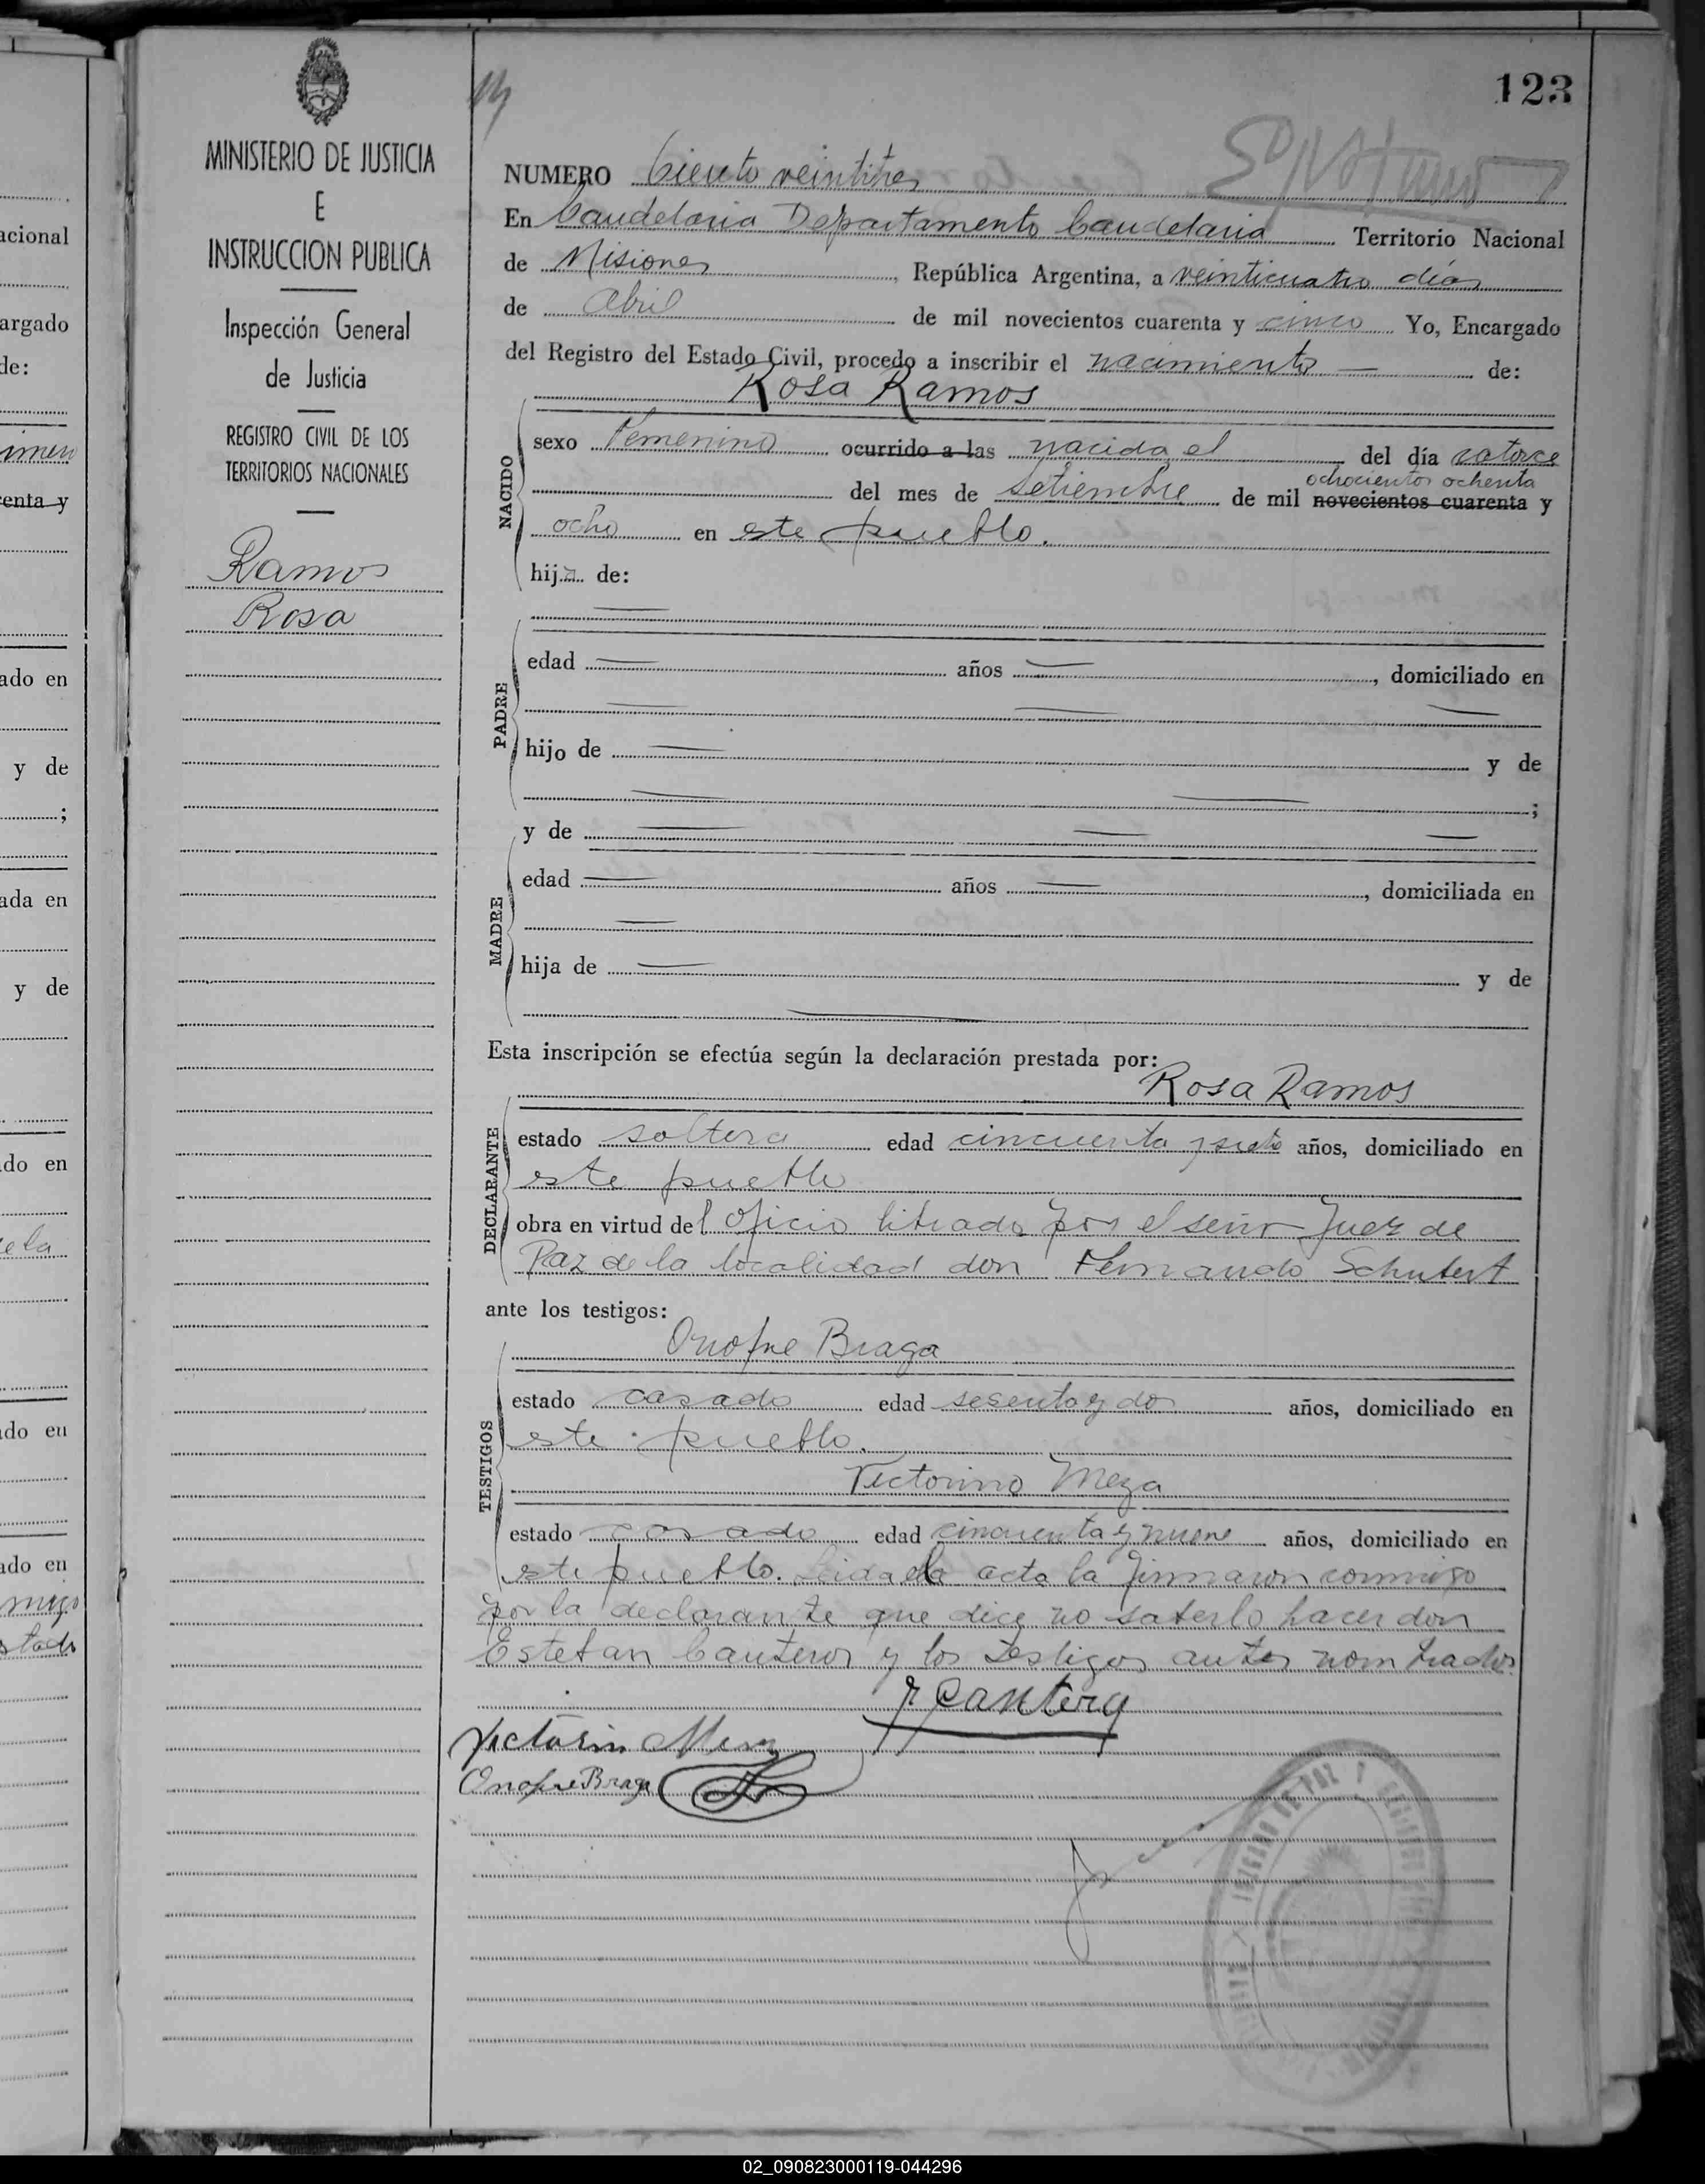 123
MINISTERIO DE JUSTICIA
E
INSTRUCCION PUBLICA
Inspección General
de Justicia
REGISTRO CIVIL DE LOS
TERRITORIOS NACIONALES
Ramos
Rosa
NUMERO Ciento veintitres
En Candelaria Departamento Candelaria Territorio Nacional
de Misiones, República Argentina, a veinticuatro días
de Abril de mil novecientos cuarenta y cinco Yo, Encargado
del Registro del Estado Civil, procedo a inscribir el nacimiento — de:
Rosa Ramos
NACIDO
sexo Femenino ocurrido a las nacida el del día catorce
ochocientos ochenta
del mes de Setiembre de mil novecientos cuarenta y
ocho en este pueblo.
hija de:
PADRE
edad — años —, domiciliado en
hijo de — y de
;
y de —
MADRE
edad — años —, domiciliada en
hija de — y de
Esta inscripción se efectúa según la declaración prestada por:
Rosa Ramos
DECLARANTE
estado soltera edad cincuenta y siete años, domiciliado en
este pueblo
obra en virtud del Oficio librado por el señor Juez de
Paz de la localidad don Fernando Schubert
ante los testigos:
Onofre Braga
TESTIGOS
estado casado edad sesenta y dos años, domiciliado en
este pueblo.
Victorino Meza
estado casado edad cincuenta y nueve años, domiciliado en
este pueblo. Leida el acta la firmaron conmigo
por la declarante que dice no saberlo hacer don
Esteban Canteros y los testigos antes nombrados.
Cantero
Victorin Meza
Onofre Braga
acional
argado
de:
imen
enta y
ado en
y de
;
ada en
y de
do en
ela
do en
ado en
migo
02_090823000119-044296